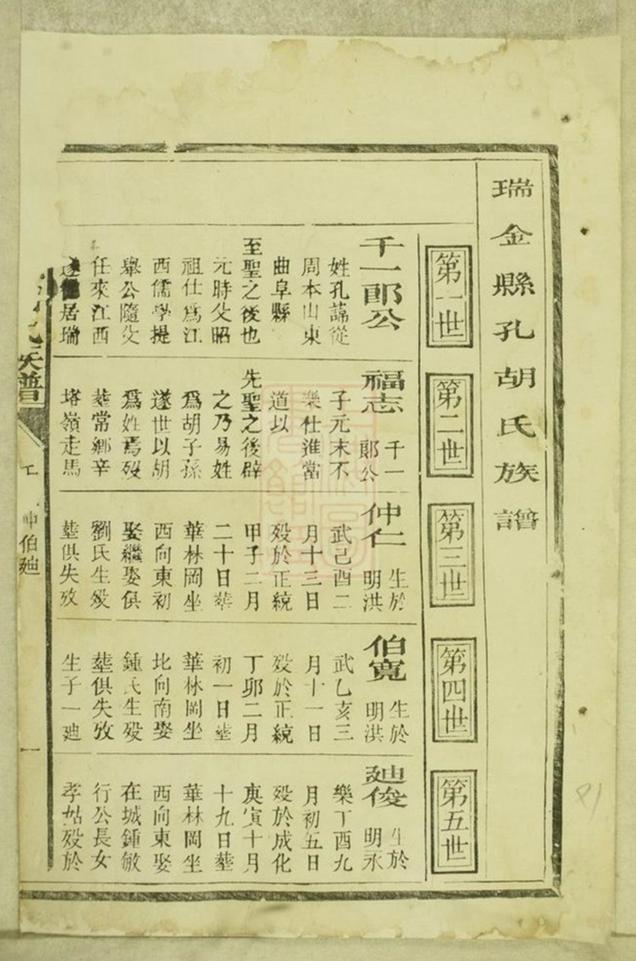 瑞金縣孔胡氏族譜
第一世
第二世
第三世
第四世
第五世
千一郎公
姓孔諱從
周本山東
曲阜縣
至聖之後也
元時父昭
祖仕爲江
西儒學提
舉公隨父
任來江西
居瑞
福志 千一
郎公
子元末不
樂仕進當
道以
先聖之後辟
之乃易姓
爲胡子孫
遂世以胡
爲姓焉歿
塟常鄉辛
塔嶺走馬
仲仁 生於
明洪
武己酉二
月十三日
歿於正統
甲子二月
二十日塟
華林岡坐
西向東初
娶繼娶俱
劉氏生歿
塟俱失攷
伯寬 生於
明洪
武乙亥三
月十一日
歿於正統
丁卯二月
初一日塟
華林岡坐
北向南娶
鍾氏生歿
塟俱失攷
生子一廸
廸俊 生於
明永
樂丁酉九
月初五日
歿於成化
庚寅十月
十九日塟
華林岡坐
西向東娶
在城鍾敏
行公長女
孝姑歿於
氏族譜
仲伯廸
一